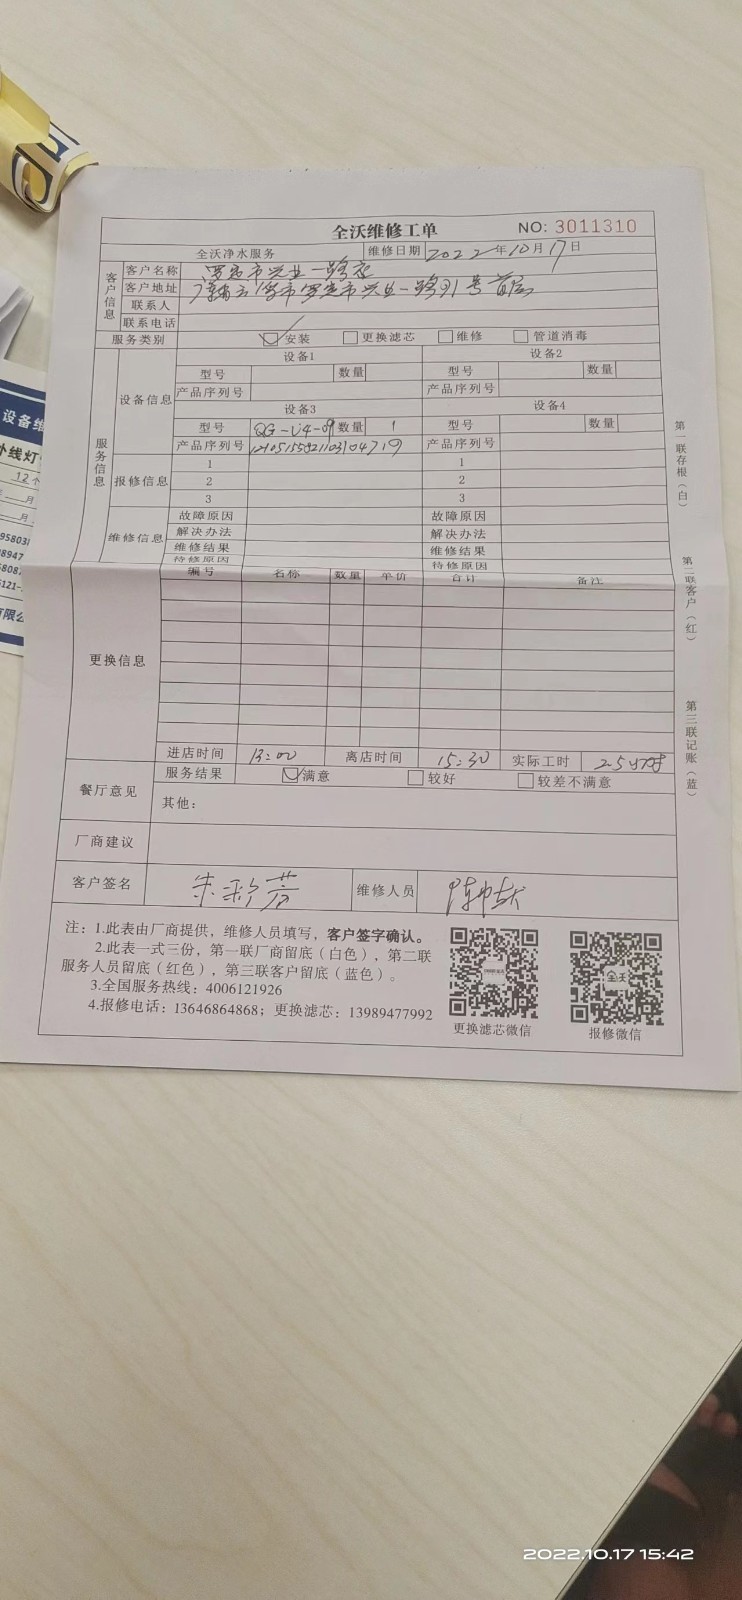 全沃维修工单 NO: 3011310
全沃净水服务 维修日期 2022年10月17日
客户信息
客户名称 罗定市兴业一路店
客户地址 广东云浮市罗定市兴业一路91号首层
联系人
联系电话
服务类别 安装 更换滤芯 维修 管道消毒
服务信息
设备信息
设备1 设备2
型号 数量 型号 数量
产品序列号 产品序列号
设备3 设备4
型号 QG-U4-09 数量 1 型号 数量
产品序列号 产品序列号
报修信息
1 1
2 2
3 3
维修信息
故障原因 故障原因
解决办法 解决办法
维修结果 维修结果
待修原因 待修原因
更换信息
编号 名称 数量 单价 合计 备注
进店时间 13:00 离店时间 15:30 实际工时 2.5小时
餐厅意见
服务结果 满意 较好 较差不满意
其他:
厂商建议
客户签名 朱彩芳 维修人员
注: 1.此表由厂商提供，维修人员填写，客户签字确认。
2.此表一式三份，第一联厂商留底（白色），第二联
服务人员留底（红色），第三联客户留底（蓝色）。
3.全国服务热线: 4006121926
4.报修电话: 13646864868; 更换滤芯: 13989477992
更换滤芯微信 报修微信
全沃
第一联存根（白）
第二联客户（红）
第三联记账（蓝）
设备维
外线灯
12个
月
月
2022.10.17 15:42